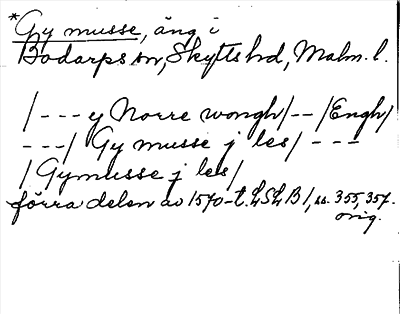 *Gy musse, äng i
Bodarps sn, Skytts hd, Malm. l.
/--- y Norre wongh/--/Engh/
---/ Gy musse j les/ ---
/Gymusse j les/
förra delen av 1570-t. LSLB1, ss. 355, 357.
orig.